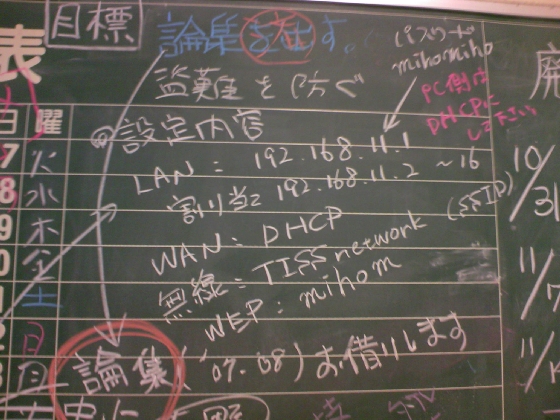 目標
論集を出す。
盗難を防ぐ
パスワード
mihomiho
PC側は
DHCPに
して下さい
表
日 曜
@設定内容
LAN: 192.168.11.1
割り当て 192.168.11.2 ~16
WAN: DHCP
無線: TISSnetwork (SSID)
WEP: mihom
論集('07.08)お借りします
7 火
8 水
9 木
0 金
1 土
2 日
3 月
10/31
11/7
11/